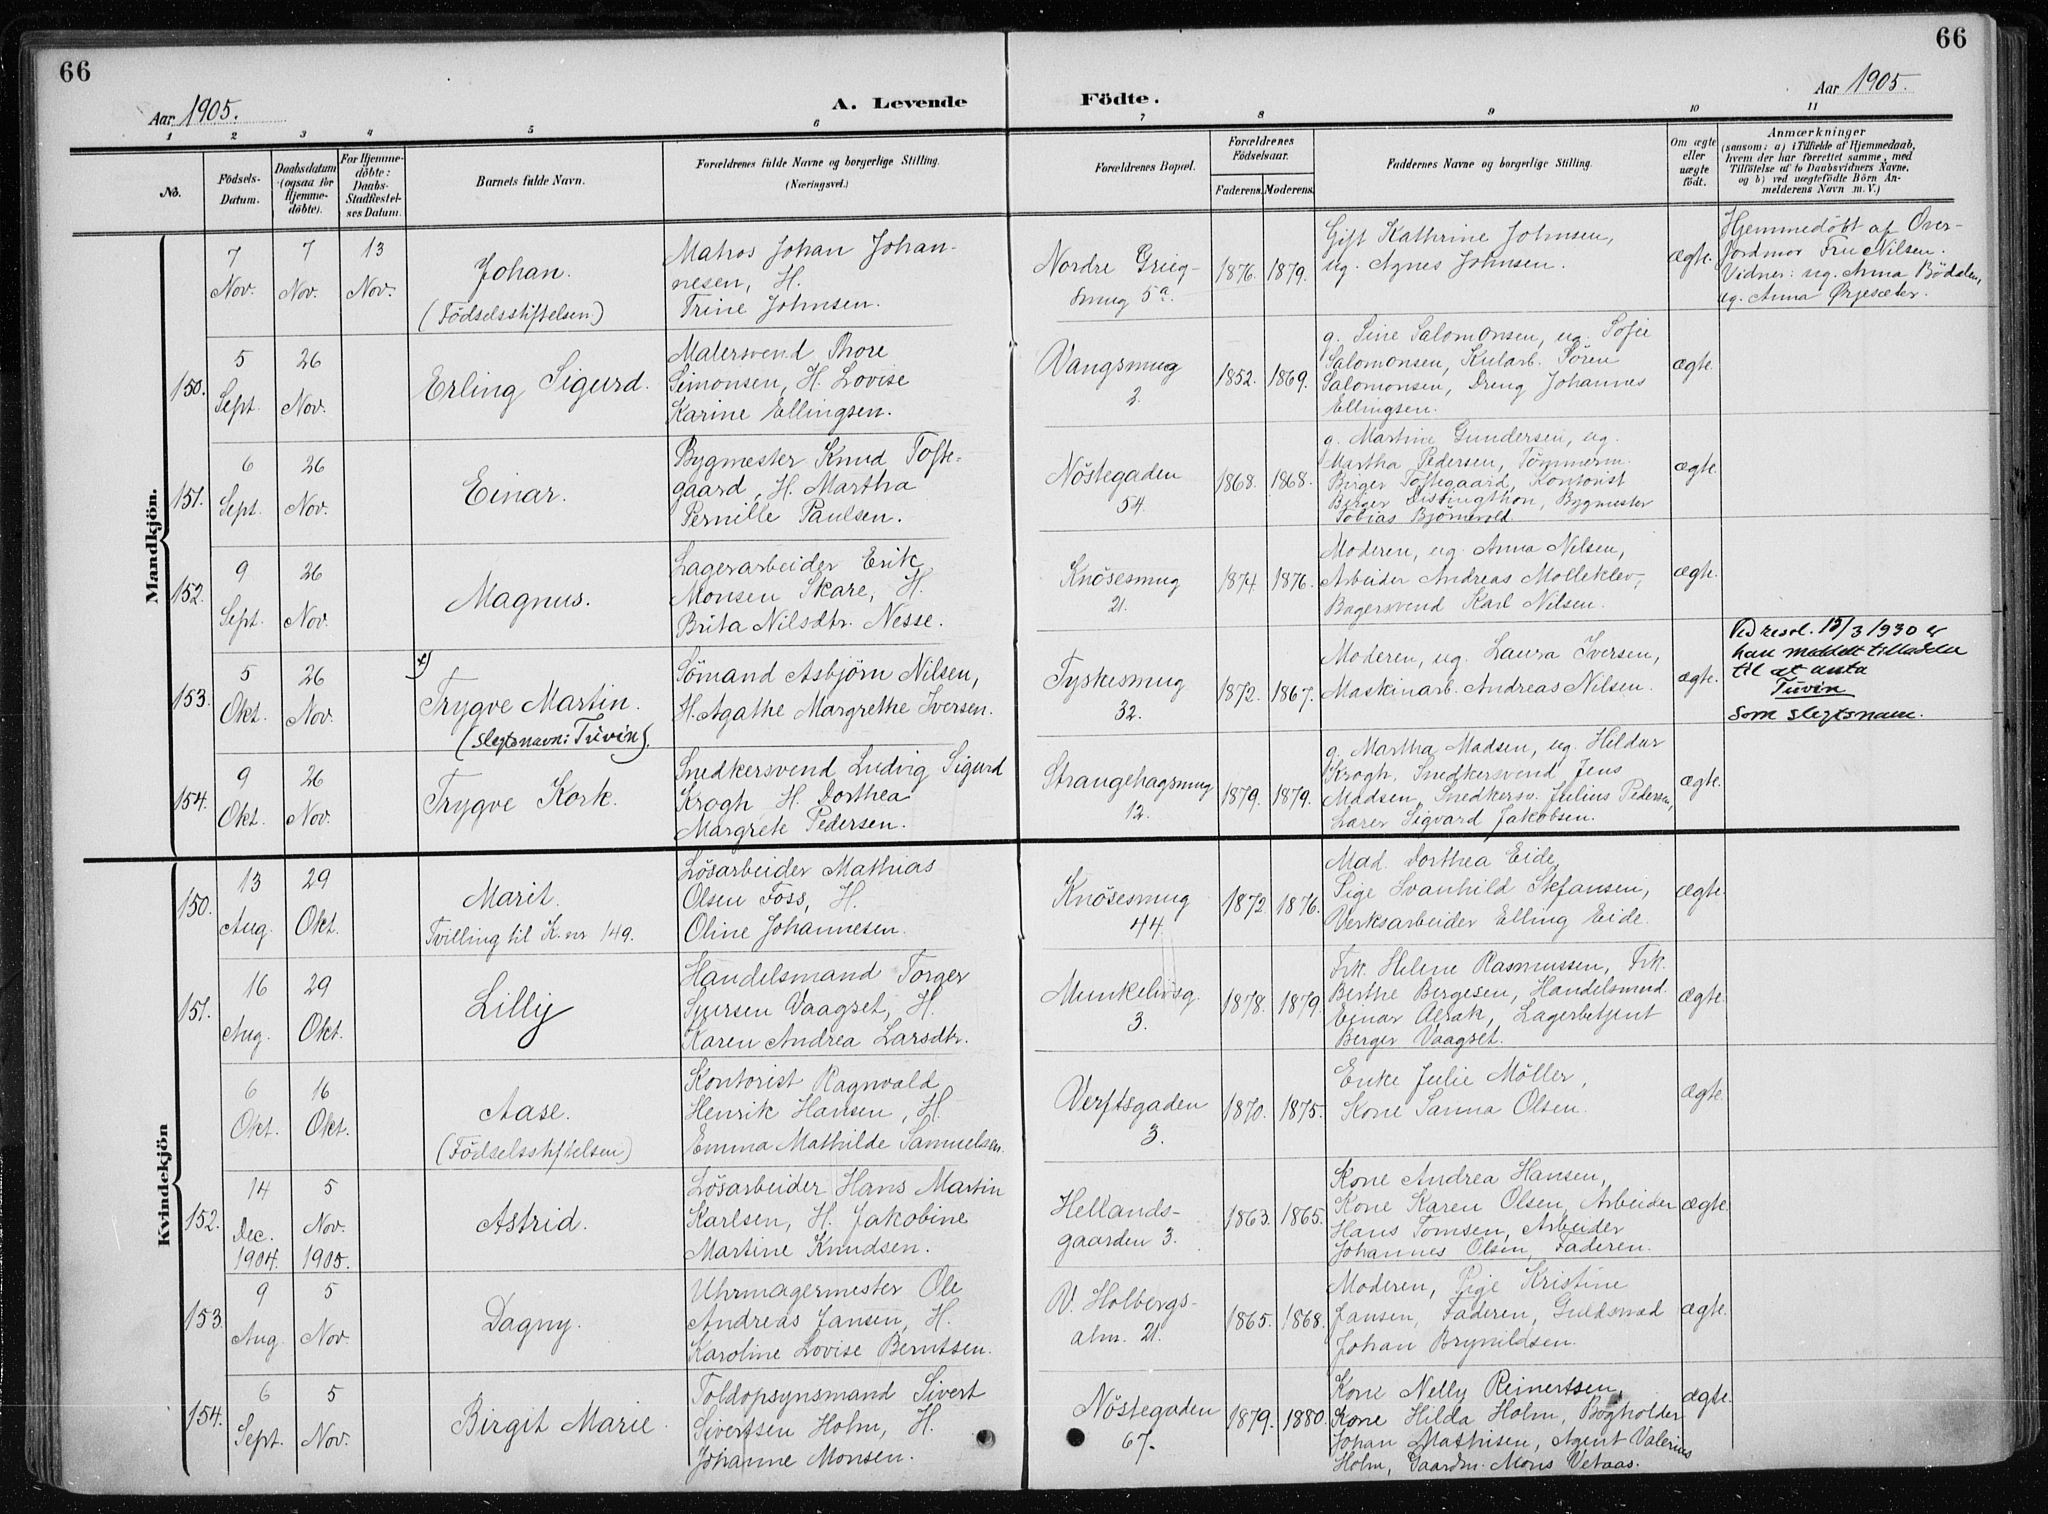 66
66
Aar 1905.
A. Levende
Födte.
Aar 1905.
1
2
3
4
5
6
7
8
9
10
11
No.
Födsels-
Datum.
Daabsdatum
(ogsaa for
Hjemme-
döbte).
For Hjemme-
döbte:
Daabs-
Stadfæstel-
ses Datum.
Barnets fulde Navn.
Forældrenes fulde Navne og borgerlige Stilling.
(Næringsvei.)
Forældrenes Bopæl.
Forældrenes
Födselsaar.
Faderens.
Moderens.
Faddernes Navne og borgerlige Stilling.
Om ægte
eller
uægte
födt.
Anmærkninger
(saasom: a) i Tilfælde af Hjemmedaab,
hvem der har forrettet samme, med
Tilföielse af to Daabsvidners Navne,
og b) ved uægtefödte Börn An-
melderens Navn m. V.)
Mandkjön.
7
Nov.
7
Nov.
13
Nov.
Johan.
(Födselsstiftelsen)
Matros Johan Johan-
nesen, H.
Trine Johnsen.
Nordre Grieg-
smug 5a.
1876.
1879.
Gift Kathrine Johnsen,
ug. Agnes Johnsen.
ægte.
Hjemmedöbt af Over-
jordmor Fru Nilsen.
Vidner: ug. Anna Bödden,
ug. Anna Ørjesæter.
150.
5
Sept.
26
Nov.
Erling Sigurd.
Malersvend Thore
Simonsen, H. Lovise
Karine Ellingsen.
Vangsmug
2.
1852.
1869.
g. Sine Salomonsen, ug. Sofie
Salomonsen, Kularb. Sören
Salomonsen, Dreng Johannes
Ellingsen.
ægte.
151.
6
Sept.
26
Nov.
Einar.
Bygmester Knud Tofte-
gaard, H. Martha
Pernille Paulsen.
Nöstegaden
54.
1868.
1868.
g. Martine Gundersen, ug.
Martha Pedersen, Tömmerm.
Birger Toftegaard, Kontorist
Birger Dissingthon, Bygmester
Tobias Bjömevold.
ægte.
152.
9
Sept.
26
Nov.
Magnus.
Lagerarbeider Erik
Monsen Skare, H.
Brita Nilsdtr. Nesse.
Knösesmug
21.
1874
1876.
Moderen, ug. Anna Nilsen,
Arbeider Andreas Molleklev,
Bagersvend Karl Nilsen.
ægte.
153.
5
Okt.
26
Nov.
x)
Trygve Martin.
(Slegtsnavn: Tüvin).
Sömand Asbjörn Nilsen,
H. Agathe Margrethe Iversen.
Tyskesmug
32.
1872.
1867.
Moderen, ug. Laura Iversen,
Maskinarb. Andreas Nilsen.
ægte.
Ved resol. 15/3 1930 er
han meddelt tilladelse
til at anta
Tüvin
som slegtsnavn.
154.
9
Okt.
26
Nov.
Trygve Kork.
Snedkersvend Ludvig Sigurd
Krogh, H. Dorthea
Margrete Pedersen.
Strangehagsmug
12.
1879.
1879.
g. Martha Madsen, ug. Hildur
Krogh, Snedkersvend Jens
Madsen, Snedkersv. Julius Pedersen,
Lærer Sigvard Jakobsen.
ægte.
Kvindekjön
150.
13
Aug.
29
Okt.
Marit.
Tvilling til K. nr 149.
Lösarbeider Mathias
Olsen Foss, H.
Oline Johannesen.
Knösesmug
44.
1872.
1876.
Mad. Dorthea Eide,
Pige Svanhild Stefansen,
Verksarbeider Elling Eide.
ægte.
151.
16
Aug.
29
Okt.
Lilly
Handelsmand Torger
Sjursen Vaagset, H.
Karen Andrea Larsdtr.
Munkelivsg.
3.
1878.
1879.
Frk. Helene Rasmussen, Frk.
Berthe Bergesen, Handelsmnd.
Einar Alræk, Lagerbetjent
Berger Vaagset.
ægte.
6
Okt.
16
Okt.
Aase.
(Födselsstiftelsen)
Kontorist Ragnvald
Henrik Hansen, H.
Emma Mathilde Samuelsen.
Verftsgaden
3.
1870.
1875.
Enke Julie Möller,
Kone Sanna Olsen.
ægte.
152.
14
Dec.
1904.
5
Nov.
1905.
Astrid.
Lösarbeider Hans Martin
Karlsen, H. Jakobine
Martine Knudsen.
Hellands-
gaarden 3.
1863.
1865.
Kone Andrea Hansen,
Kone Karen Olsen, Arbeider
Hans Tomsen, Arbeider
Johannes Olsen, Faderen.
ægte.
153.
9
Aug.
5
Nov.
Dagny.
Uhrmagermester Ole
Andreas Jansen, H.
Karoline Lovise Berntsen.
V. Holbergs-
alm. 21.
1865.
1868.
Moderen, Pige Kristine
Jansen, Faderen, Guldsmed
Johan Brynildsen.
ægte.
154.
6
Sept.
5
Nov.
Birgit Marie.
Toldopsynsmand Sivert
Sivertsen Holm, H.
Johanne Monsen.
Nöstegaden
67.
1879.
1880.
Kone Nelly Reinertsen,
Kone Hilda Holm, Bogholder
Johan Mathisen, Agent Valerius
Holm, Gaardm. Mons Vetaas.
ægte.